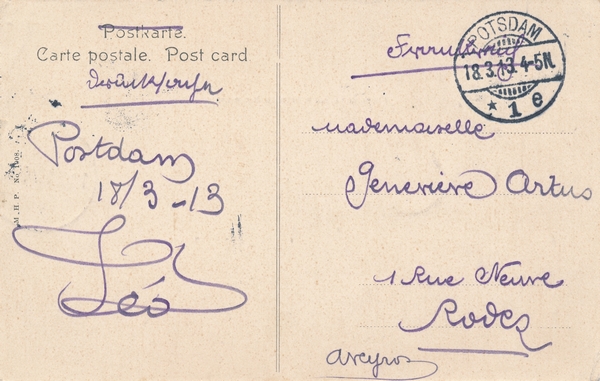 Postkarte.
Carte postale. Post card
Postdam
18/3-13
Léo
M.H.P. No. 1908.
POTSDAM
18.3.13.4-5N.
* 1 e
Mademoiselle
Geneviève Artus
1 Rue Neuve
Rodez
Aveyron